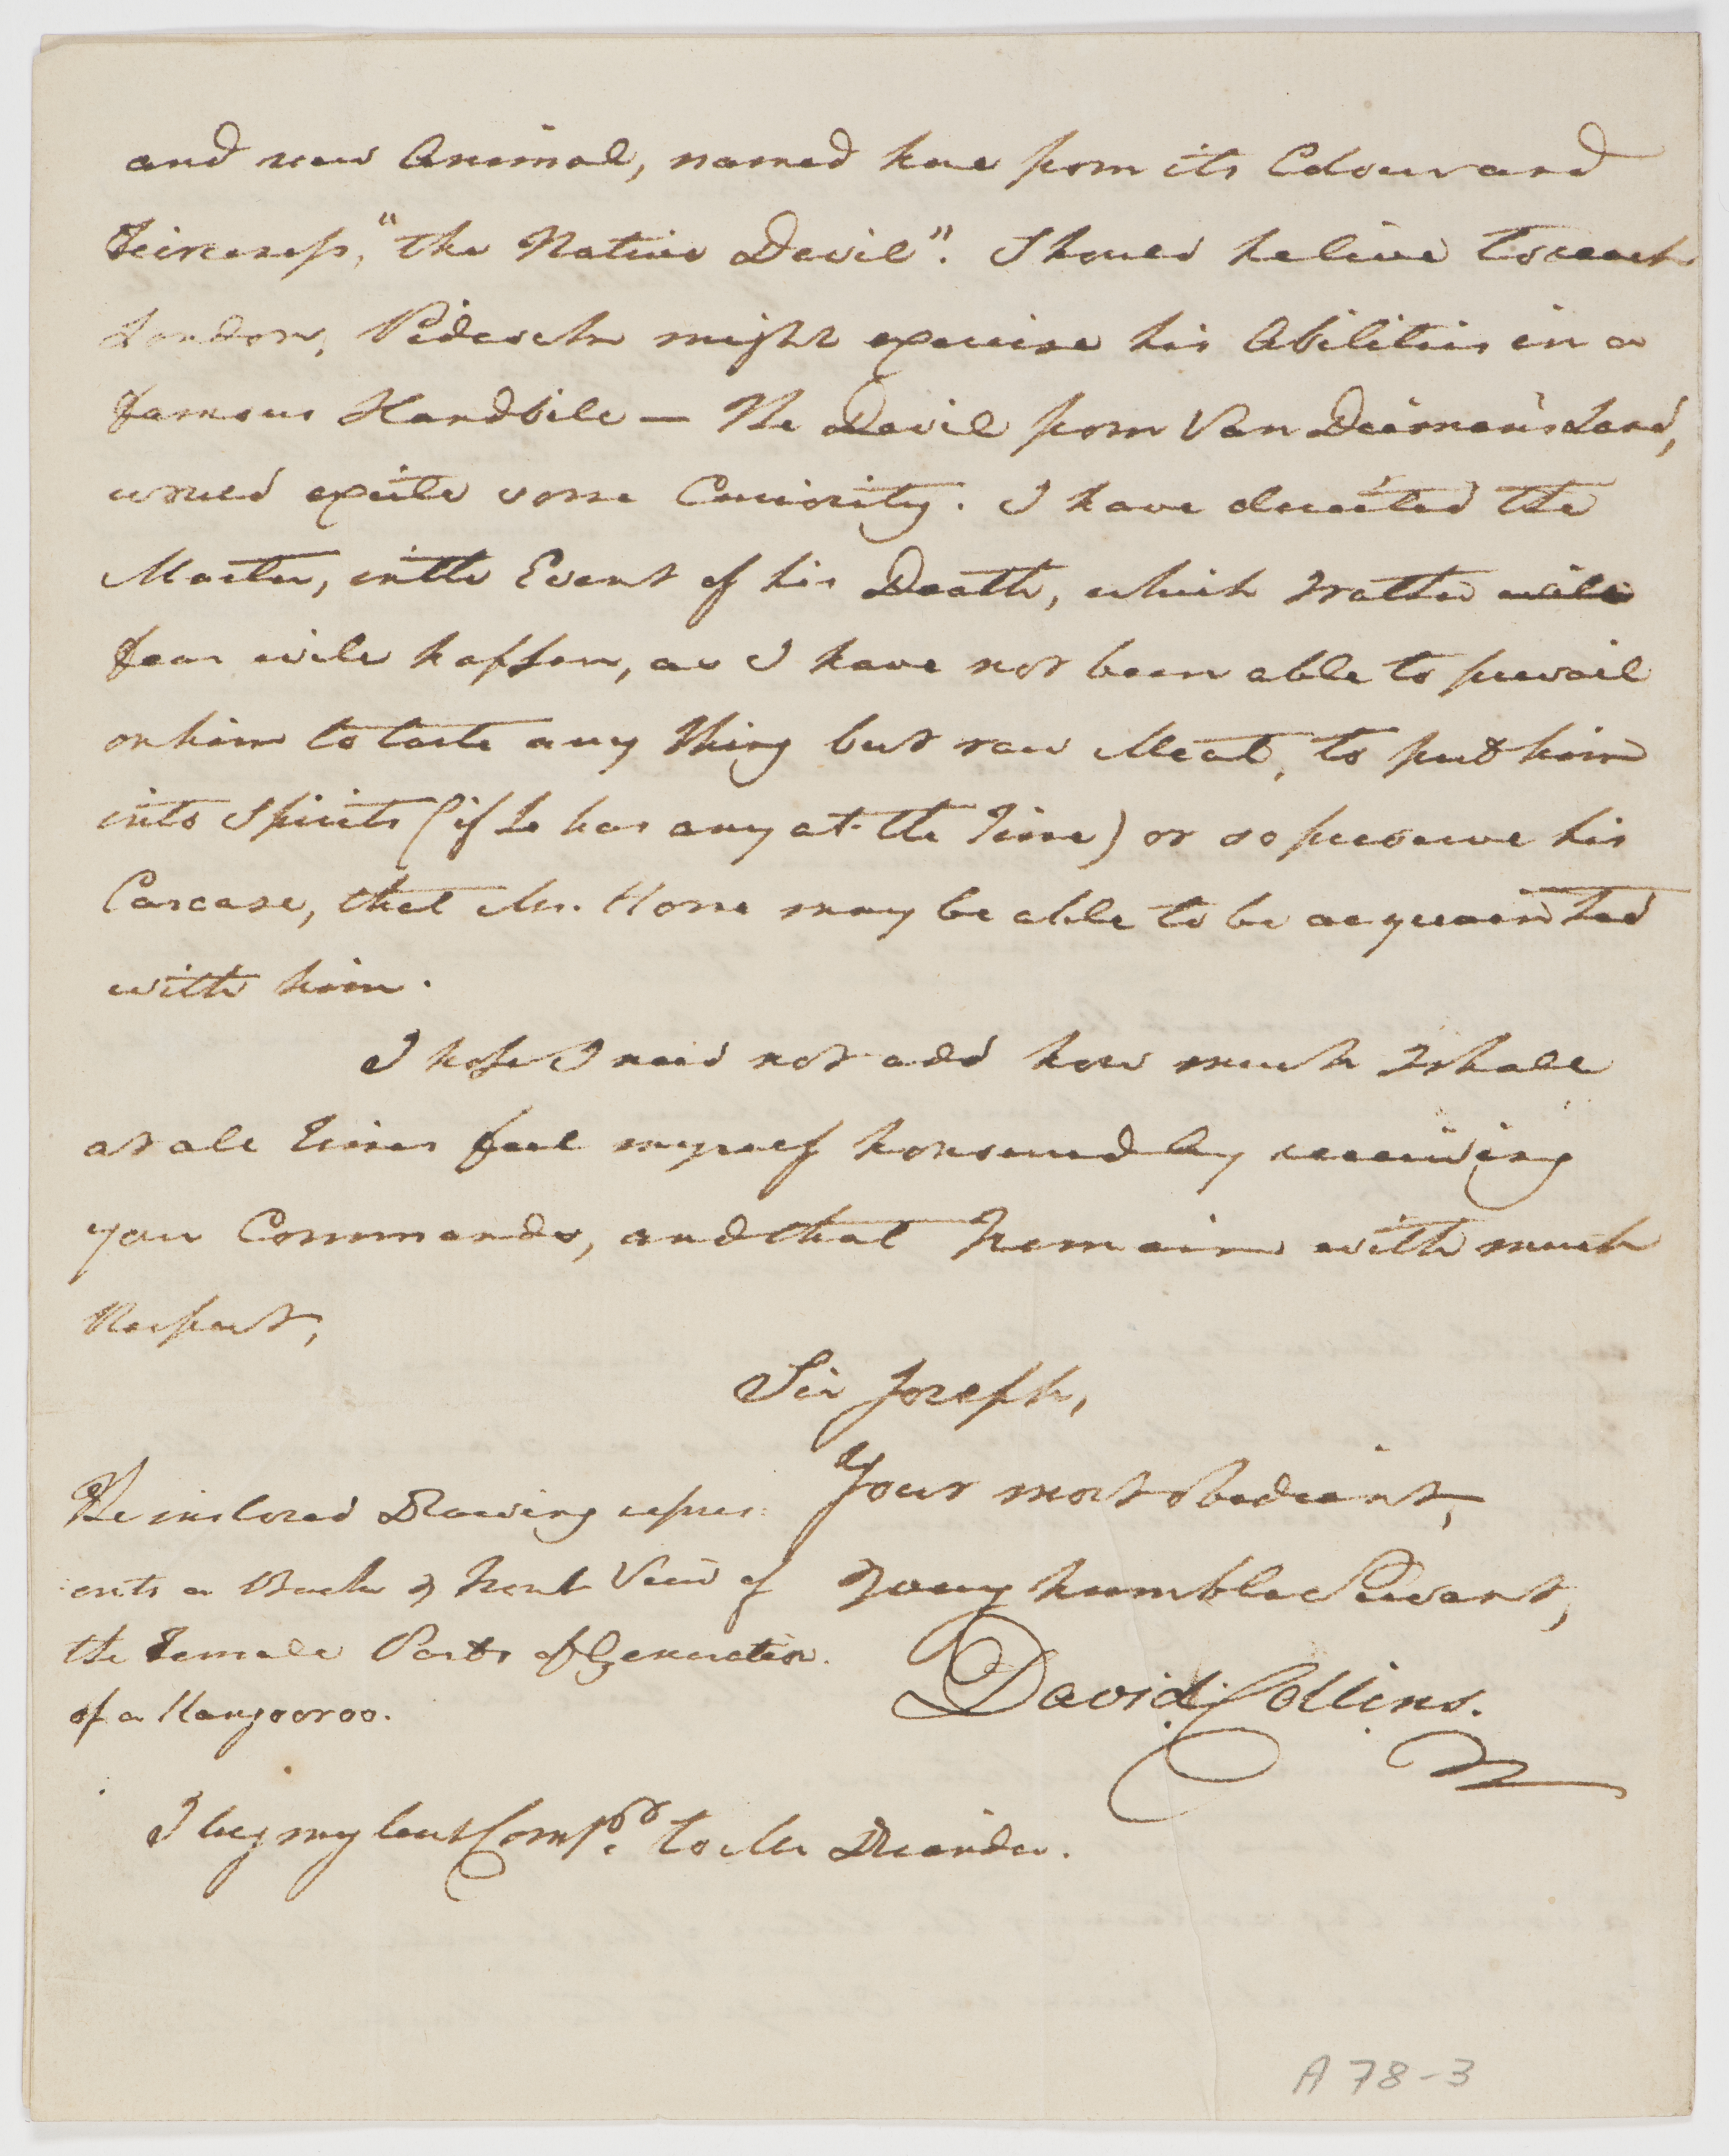 and new Animal, named here from its Colour and
Feirceness, "the Native Devil". Should he live to reach
London, Pidcock might exercise his Abilities in a
famous Handbill — The Devil from Van Diemen's Land,
would excite some Curiosity. I have directed the
Master, in the Event of his Death, which I rather will
fear will happen, as I have not been able to prevail
on him to taste any thing but raw Meat, to put him
into Spirits (if he has any at the Time) or so preserve his
Carcase, that Mr. Home may be able to be acquainted
with him.
I hope I need not add how much I shall
at all Times feel myself honoured by receiving
your Commands, and that I remain with much
Respect,
Sir Joseph,
Your most obedient,
& very humble Servant,
David Collins.
The inclosed Drawing repres:
:ents a Back & Front View of
the Female Parts of Generation
of a Kangooroo.
I beg my best Comp.ts to Mr Dryander.
A 78-3